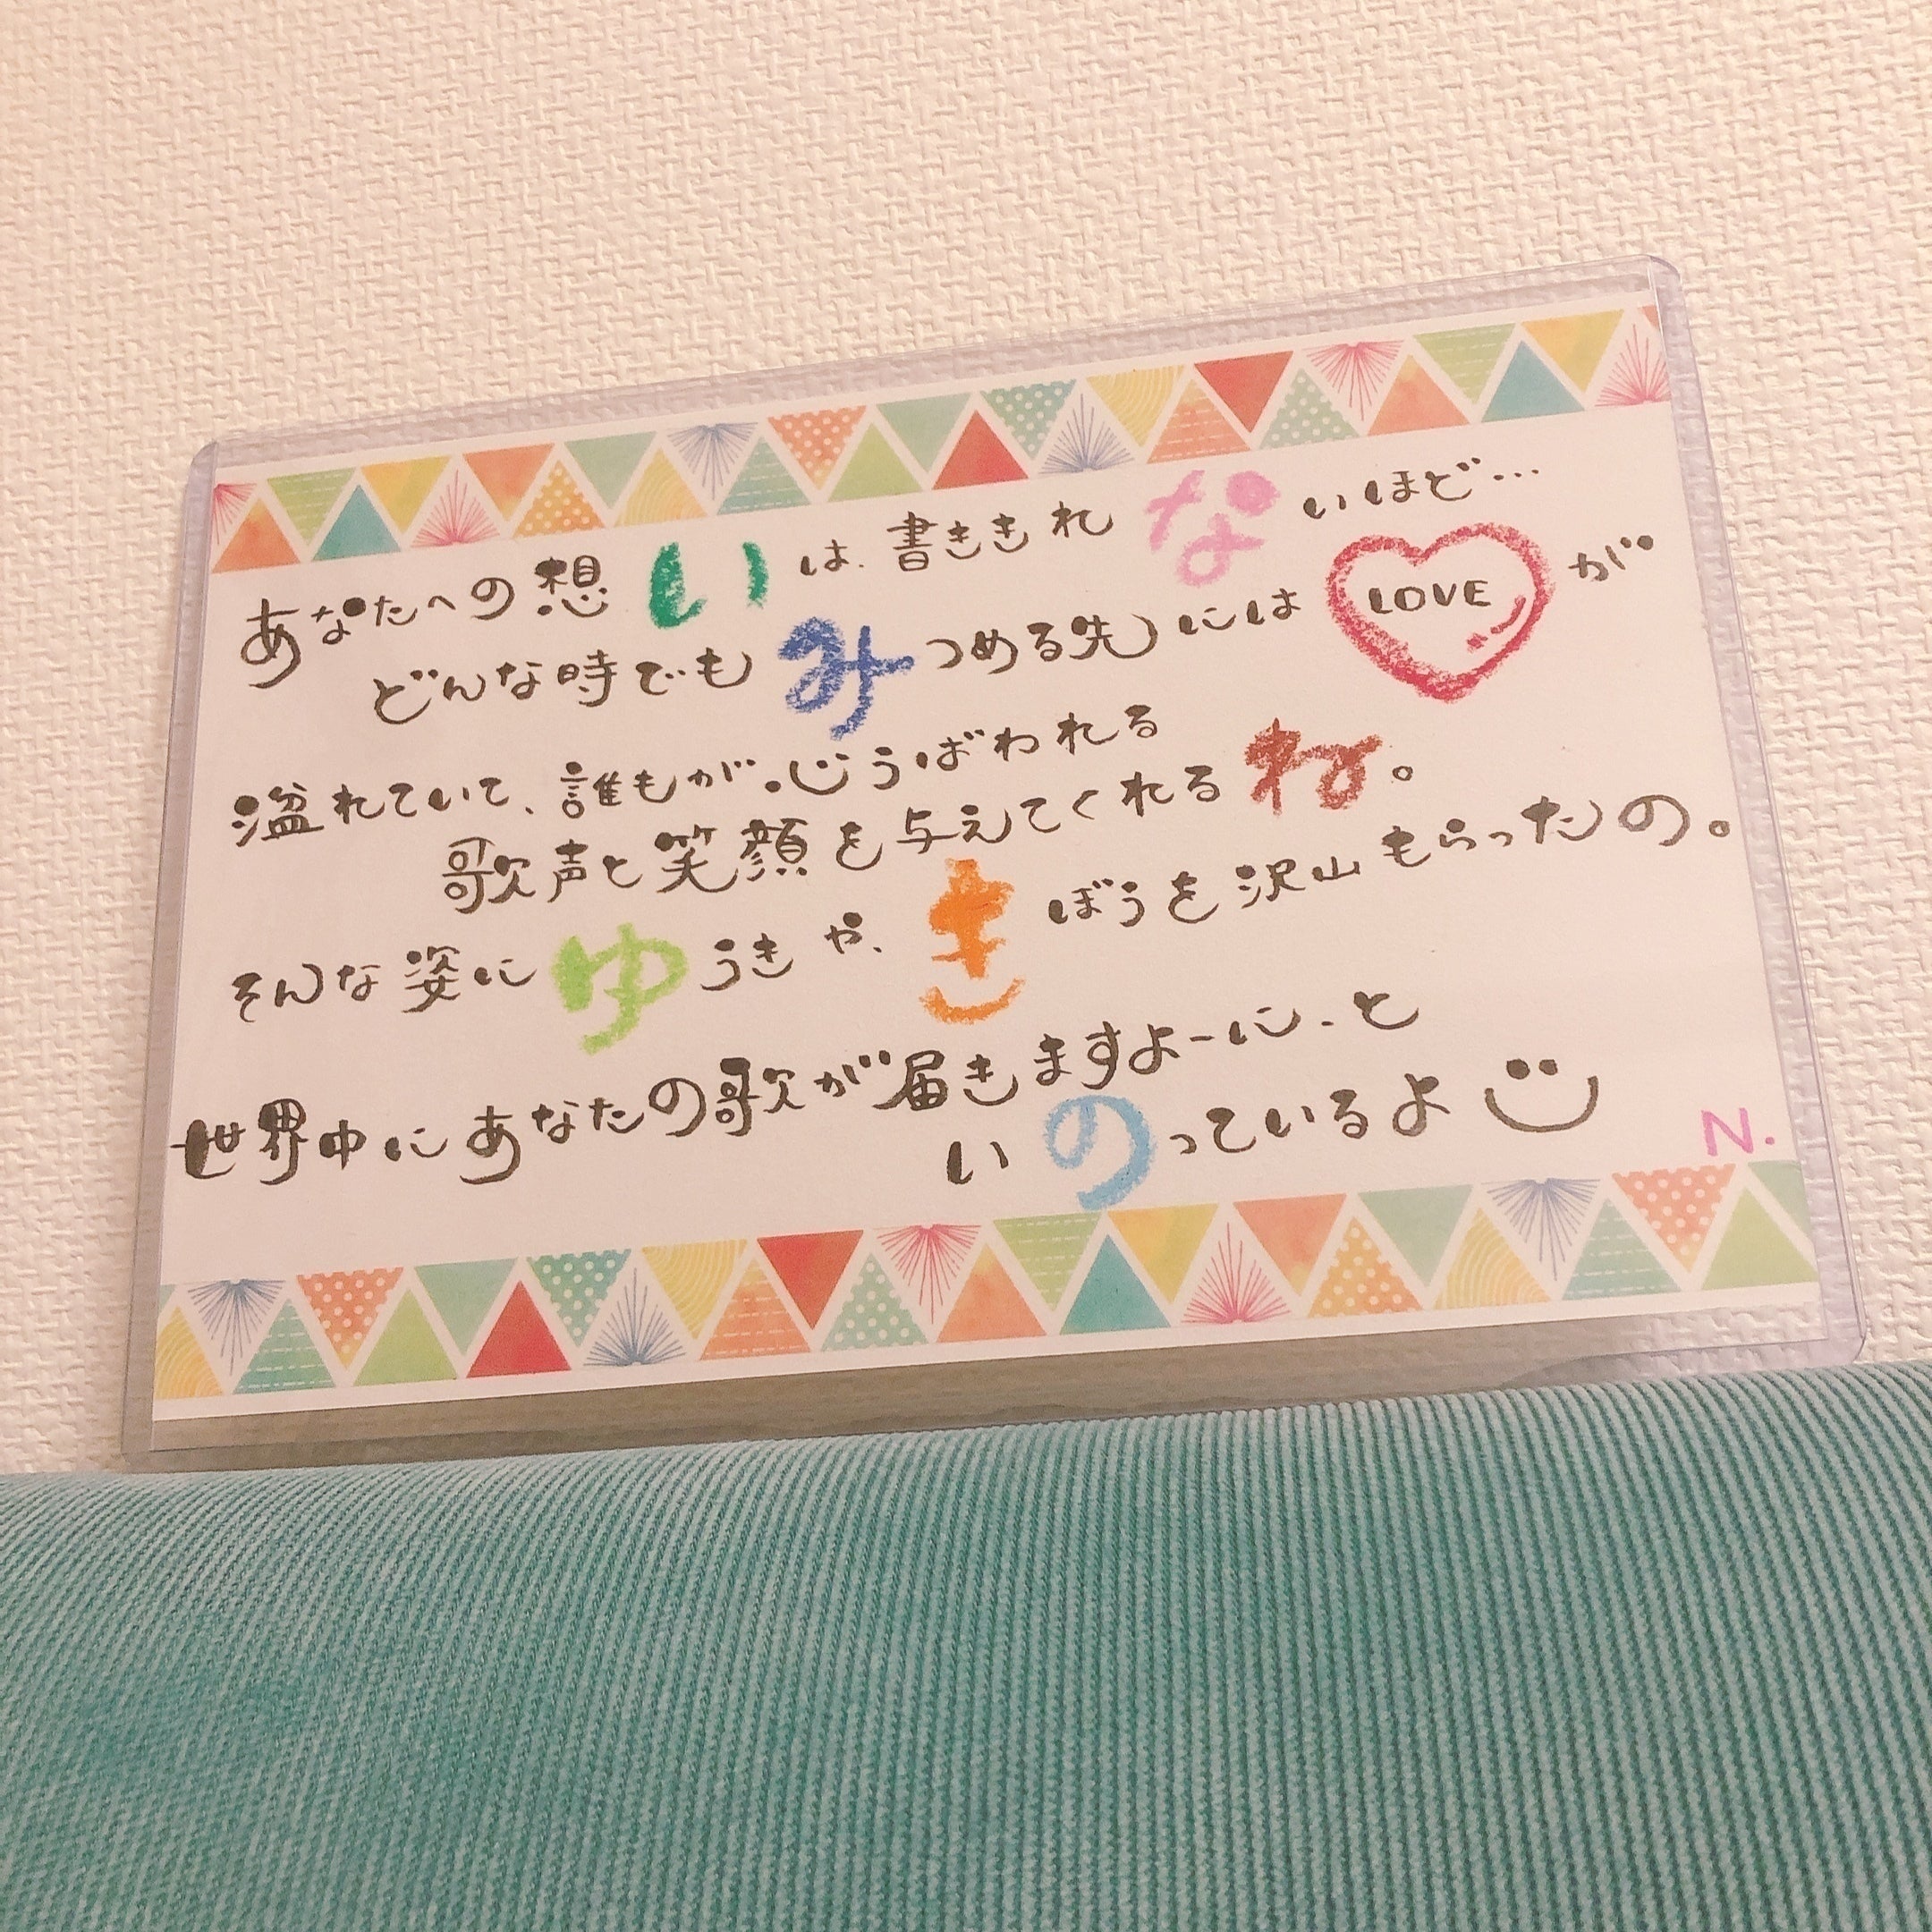 あなたへの想いは、書ききれないほど…
どんな時でもみつめる先にはLOVEが
溢れていて、誰もが心うばわれる
歌声と笑顔を与えてくれるね。
そんな姿にゆうきや、きぼうを沢山もらったの。
世界中にあなたの歌が届きますよーに、と
いのっているよ
N.